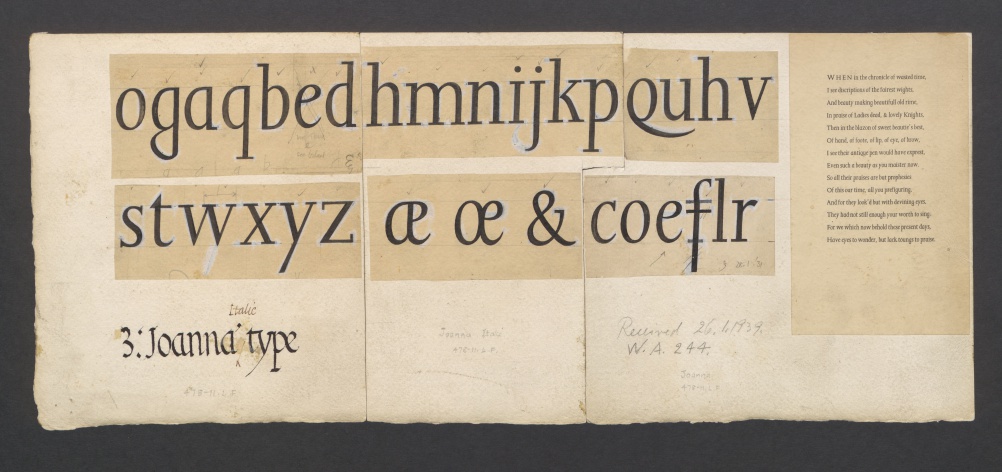 ogaqbed hmnijkp Quhv
stwxyz æ œ & coeflr
Italic
3: Joanna type
478-11. L F.
Joanna Italic
478-11. L F.
Received 26.6.1939.
W. A. 244.
Joanna
478-11. L F
WHEN in the chronicle of wasted time,
I see discriptions of the fairest wights,
And beauty making beautifull old rime,
In praise of Ladies dead, & lovely Knights,
Then in the blazon of sweet beautie's best,
Of hand, of foote, of lip, of eye, of brow,
I see their antique pen would have exprest,
Even such a beauty as you maister now.
So all their praises are but prophesies
Of this our time, all you prefiguring,
And for they look'd but with devining eyes,
They had not still enough your worth to sing:
For we which now behold these present days,
Have eyes to wonder, but lack toungs to praise.